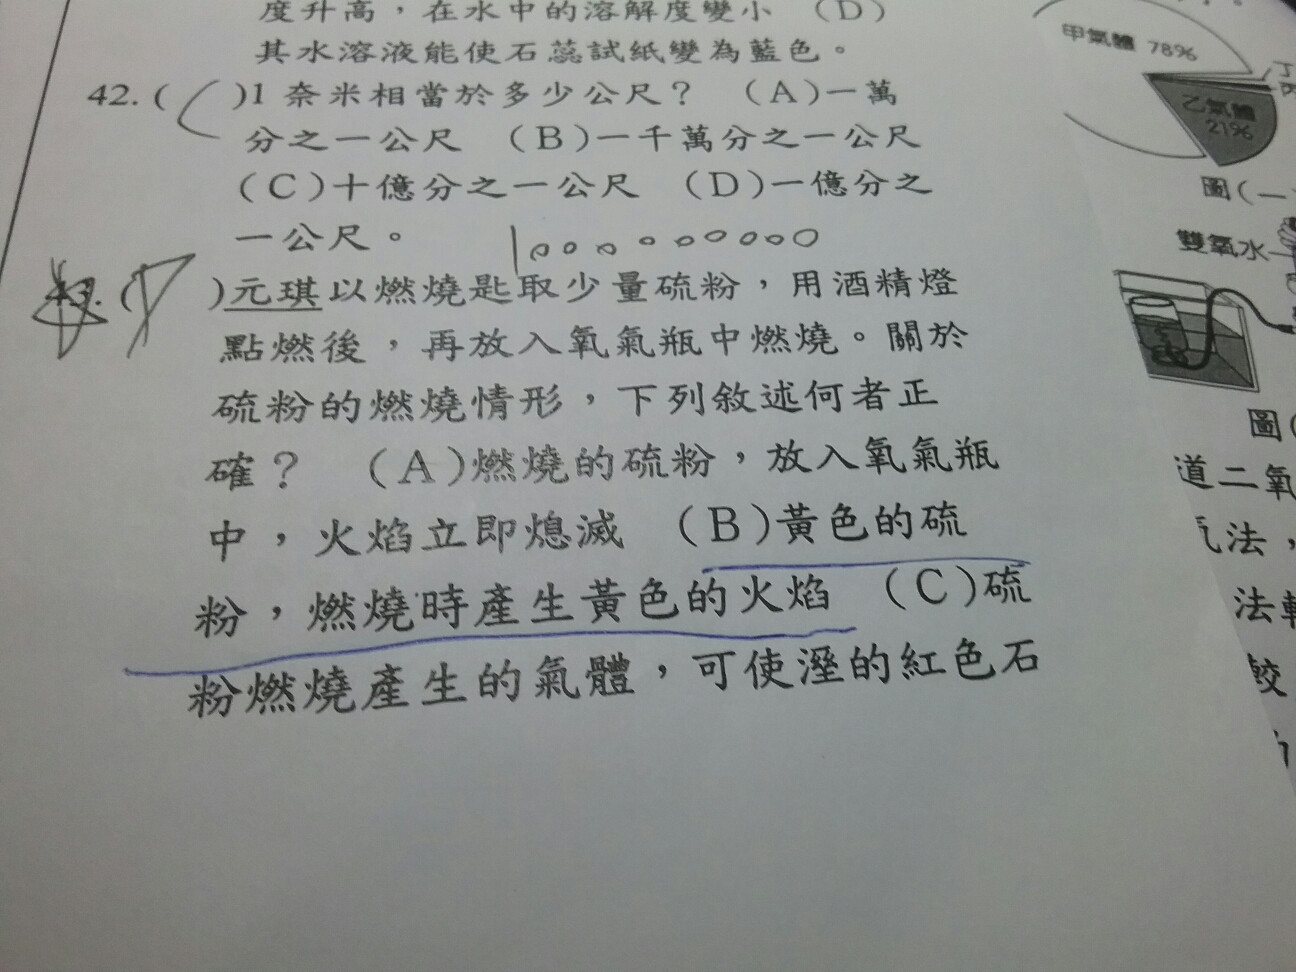 度升高，在水中的溶解度變小 （D）
其水溶液能使石蕊試紙變為藍色。
42. ( C )1 奈米相當於多少公尺？ （A）一萬
分之一公尺 （B）一千萬分之一公尺
（C）十億分之一公尺 （D）一億分之
一公尺。
1000000000
)元琪以燃燒匙取少量硫粉，用酒精燈
點燃後，再放入氧氣瓶中燃燒。關於
硫粉的燃燒情形，下列敘述何者正
確？ （A）燃燒的硫粉，放入氧氣瓶
中，火焰立即熄滅 （B）黃色的硫
粉，燃燒時產生黃色的火焰 （C）硫
粉燃燒產生的氣體，可使溼的紅色石
甲氣體 78%
丁
丙
乙氣體
21%
圖(一
雙氧水
圖(
道二氧
氣法，
法
較